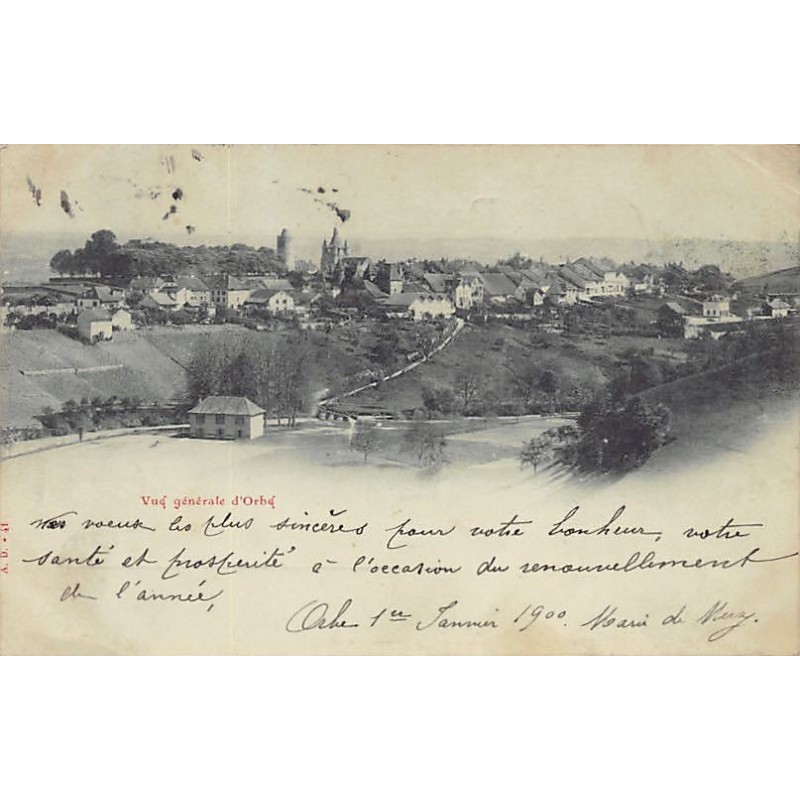 Vue générale d'Orbe
A. D. - 41
voeux les plus sincères pour votre bonheur, votre
santé et prospérité à l'occasion du renouvellement
de l'année,
Orbe 1er Janvier 1900. Marie de